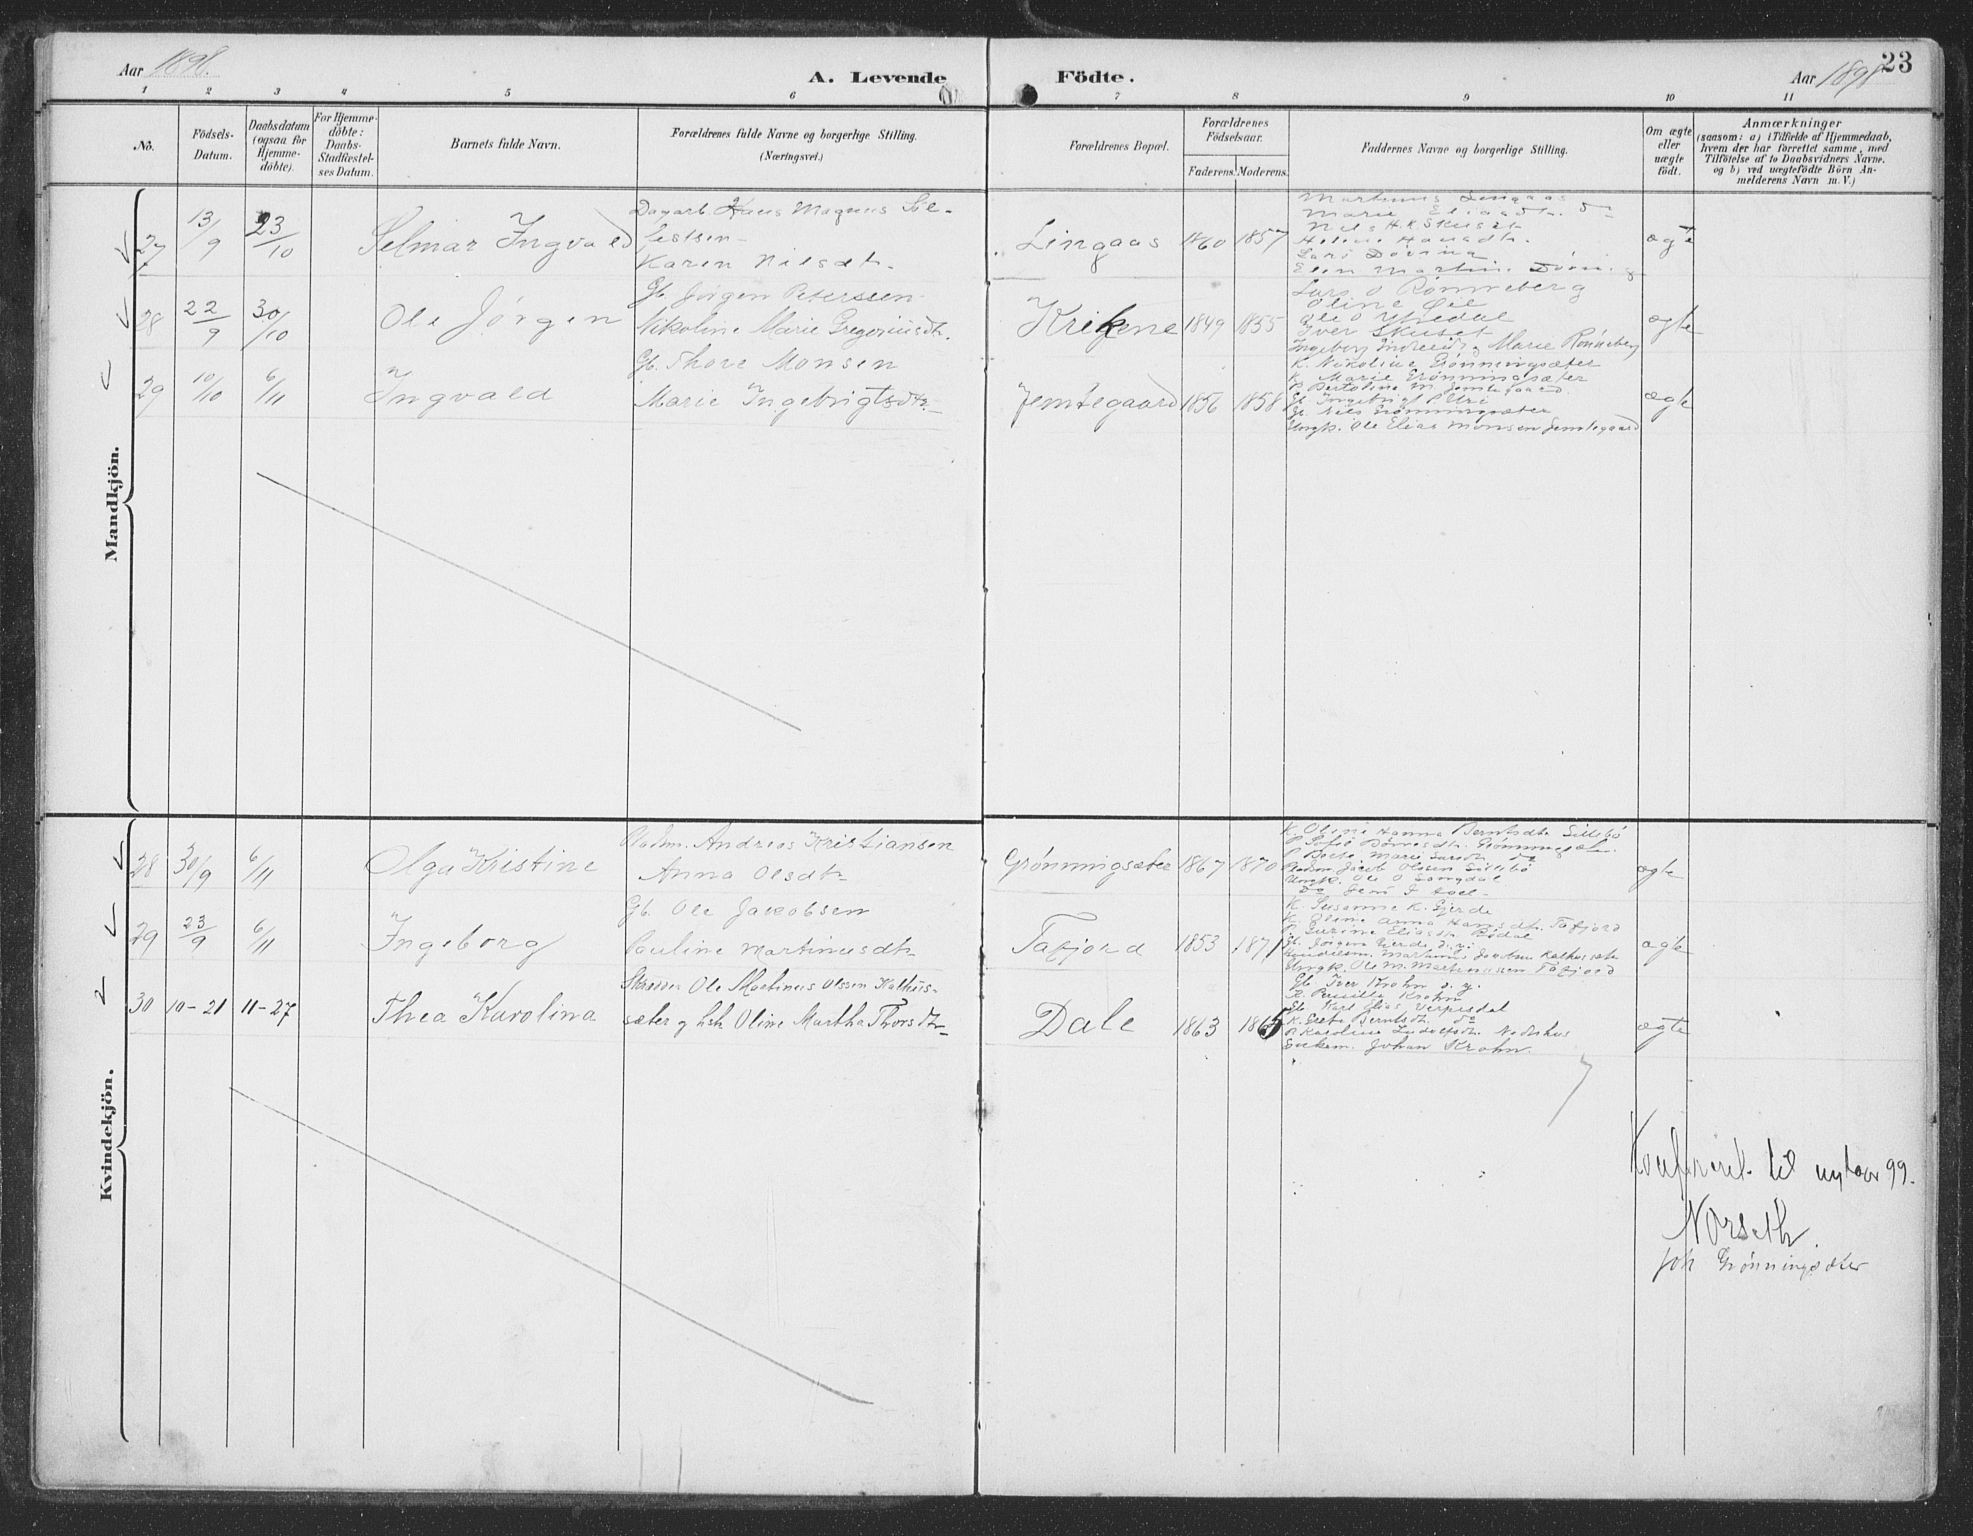 Aar 1898.
A. Levende
Födte.
Aar 1898
23
1 2 3 4 5 6 7 8 9 10 11
No.
Födsels-
Datum.
Daabsdatum
(ogsaa for
Hjemme-
döbte).
For Hjemme-
döbte:
Daabs-
Stadfæstel-
ses Datum.
Barnets fulde Navn.
Forældrenes fulde Navne og borgerlige Stilling.
(Næringsvei.)
Forældrenes Bopæl.
Forældrenes
Födselsaar.
Faderens. Moderens.
Faddernes Navne og borgerlige Stilling.
Om ægte
eller
uægte
födt.
Anmærkninger
(saasom: a) i Tilfælde af Hjemmedaab,
hvem der har forrettet samme, med
Tilföielse af to Daabsvidners Navne.
og b) ved uægtefödte Börn An-
melderens Navn m. V.)
Mandkjön.
27 13/9 23/10 Selmar Ingvald
Dagarb. Hans Magnus
Karen Nilsdtr.
Lingaas 1860 1857
Martinus Lingaas
Marie do
Nils H. R. Skuset
Helene Hansdtr.
Lars Döving
Elen Martine Döving
ægte
28 22/9 30/10 Ole Jörgen
Gb. Jörgen Peterssen
Nikoline Marie Gregoriusdtr.
Krikene 1849 1855
Lars O Rønneberg
Oline Øie
Ole O Uredal
Iver Skuset
Ingeborg Marie Rønneberg
ægte
29 10/10 6/11 Ingvald
Gb. Thore Monsen
Marie Ingebrigtsdtr.
Jemtegaard 1856 1858
K. Nikoline Grønningsæter
K. Marie Grønningsæter
P. Bertoline M. Jemtegaard
Gb. Ingebrigt P Uri
Gb. Nils Grønningsæter
Ungk. Ole Elias Monsen Jemtegaard
ægte
Kvindekjön.
28 30/9 6/11 Olga Kristine
Pladsm. Andreas Kristiansen
Anna Olsdtr.
Grønningsæter 1867 1870
K. Oline Hanna Berntsdtr. Sillebö
P. Sofie
P. Marie Larsdtr. do
Pladsm. Jacob Olssen Sillebö
Ungk. Ole O
Do Jens J
ægte
29 23/9 6/11 Ingeborg
Gb. Ole Jacobsen
Pauline Martinusdtr.
Tafjord 1853 1871
K. Susanne K. Gjerde
K. Oline Anna Hansdtr. Tafjord
P. Eliasdtr. Bödal
Gb. Jörgen Gjerde
Martinus
Ungk. Ole M. Martinussen Tafjord
ægte
30 10-21 11-27 Thea Karolina
Skredder Ole Martinus Olssen Kalhus-
sæter og hstr. Oline Martha Thorsdtr.
Dale 1863 1865
Gb. Iver Krohn d. y.
K. Pernille Krohn
Gb. Karl Elias Verpesdal
K. Berntsdtr. do
P. Karoline Ludvigsdtr. Nedrehus
Enkem. Johan Krohn.
ægte
Konfereret til nytaar 99.
Norseth.
Joh Grønningsæter